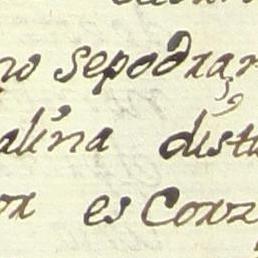 no sepodrar
alina distu
or es Corz